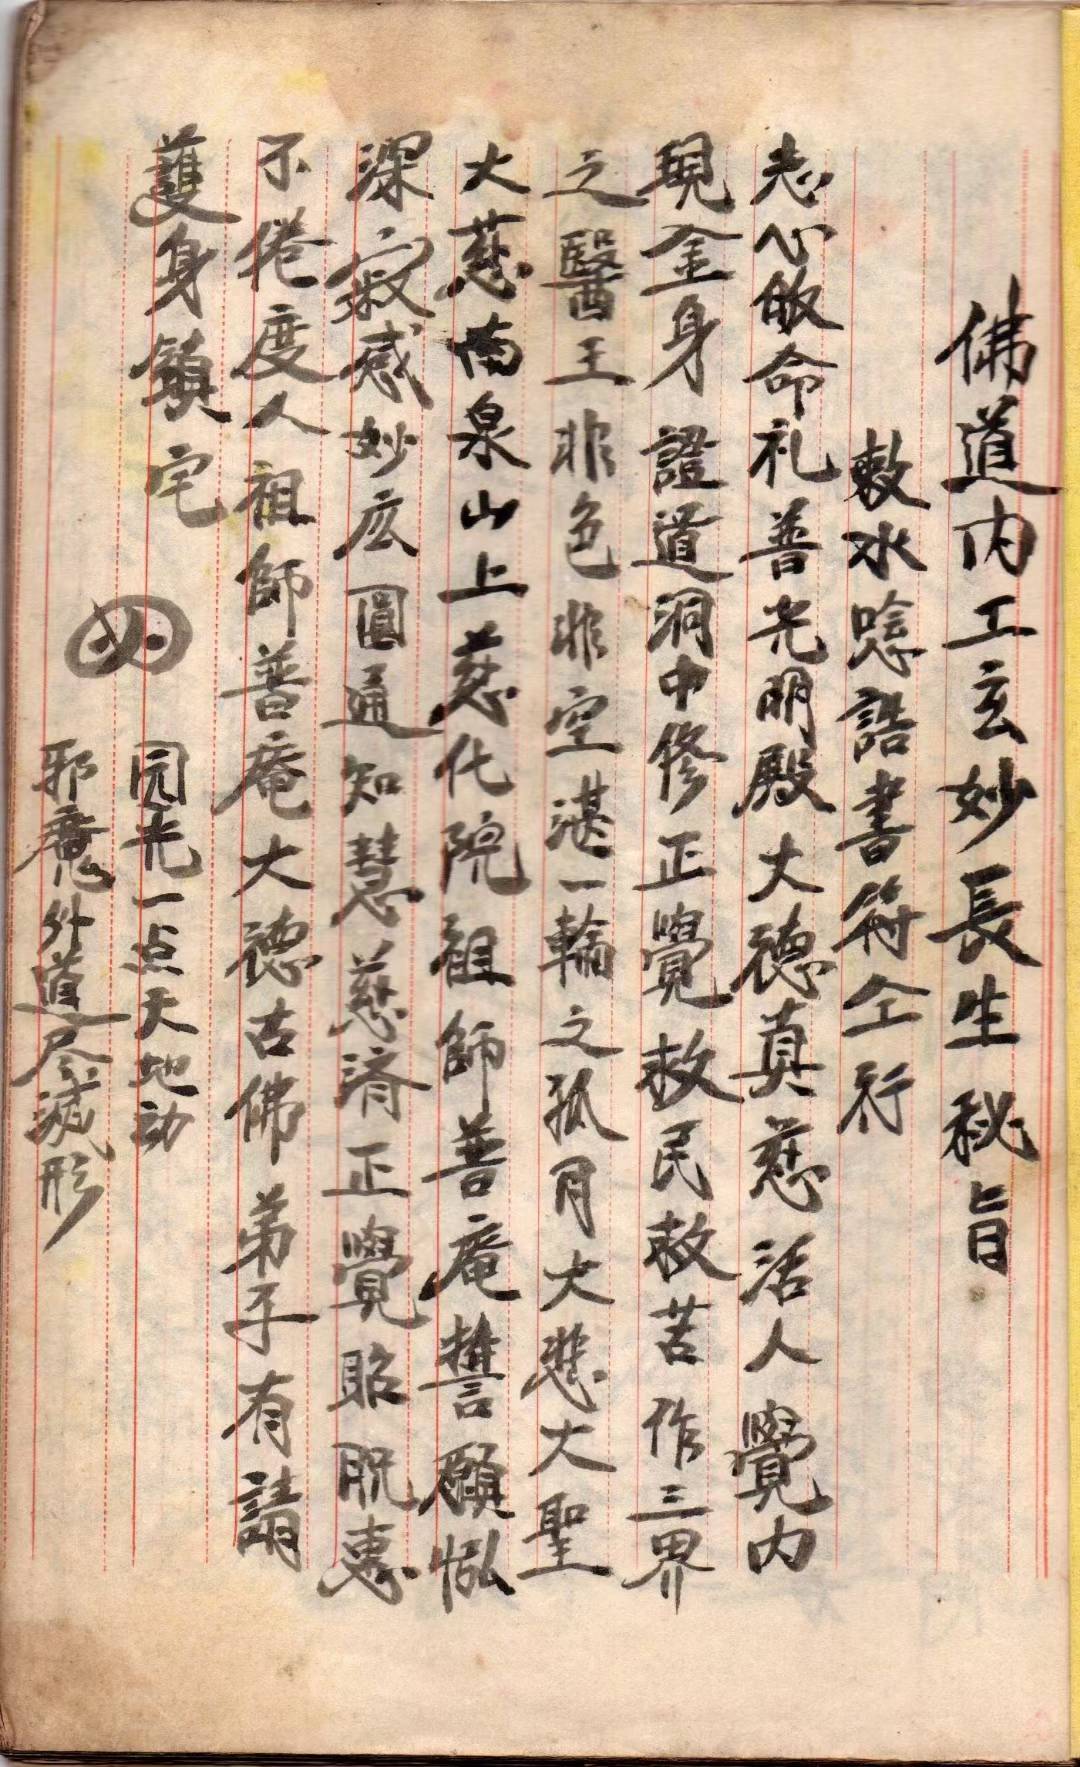 佛道内工玄妙長生秘旨
敕水唸誥書符仝行
志心皈命礼普光明殿大德真慈活人覺内
現金身證道洞中修正覺救民救苦作三界
之醫王非色非空湛一輪之孤月大悲大聖
大慈南泉山上慈化院祖師普庵誓願恢弘
深寂感妙応圓通知慧慈濟正覺昭貺惠
不倦度人祖師普庵大德古佛弟子有請
護身鎮宅
园光一点天地动
邪魔外道尽滅形